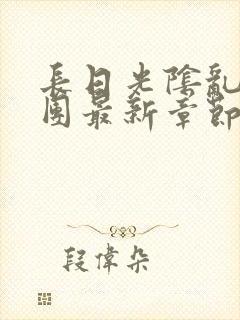 長日光陰亂
團最新章節
段偉朵